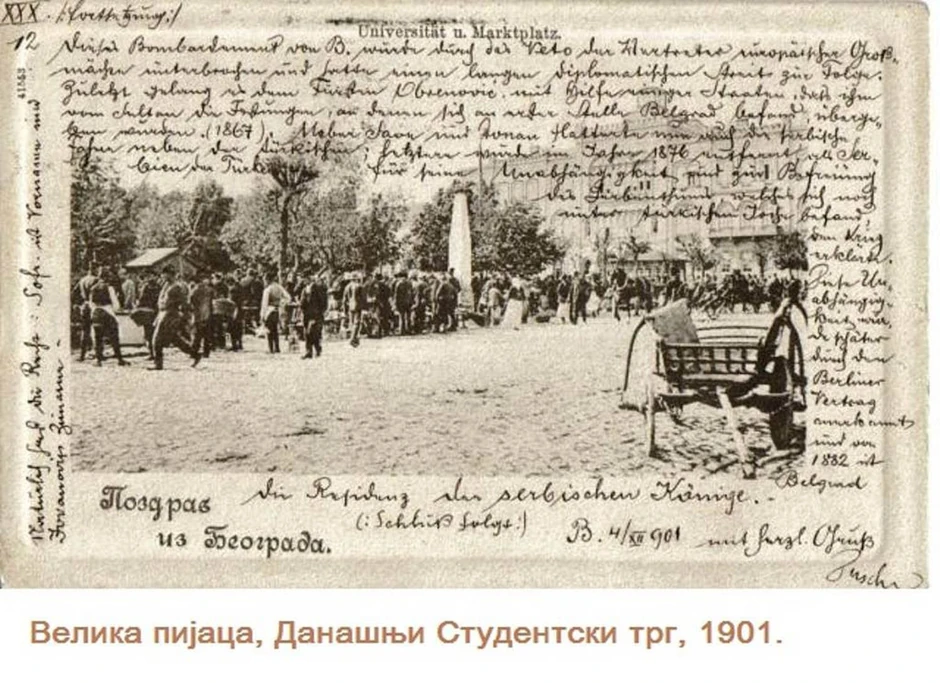 XXX. (:Fortsetzung:)
Universität u. Marktplatz.
12 Dieses Bombardement von B. würde durch das Veto der Vertreter europäischer Groß-
mächen unterbrochen und hatte einen langen diplomatischen Streit zur Folge.
Zuletzt gelang es dem Fürsten Obrenović, mit Hilfe einiger Staaten, dass ihm
vom Sultan die Festungen, an denen sich an erster Stelle Belgrad befand, überge-
ben wurden. (1867). Ueber Save und Donau flatterte nun auch die serbische
Fahne neben der türkischen; letztere würde im Jahre 1876 entfernt, als Ser-
bien der Türkei für seine Unabhängigkeit und zur Befreiung
des Serbenthums welches sich noch
unter türkischem Joche befand,
den Krieg
erklärte.
Diese Un-
abhängig-
keit wur-
de später
durch den
Berliner
Vertrag
anerkannt
und von
1882 ist
Belgrad
die Residenz der serbischen Könige. -
(:Schluß folgt:)
Поздрав
из Београда.
B. 4/XII 901 mit herzl. Gruß
41583
Natürlich sind die Rechte: Vorname und
Jovanović Zuname -
Велика пијаца, Данашњи Студентски трг, 1901.